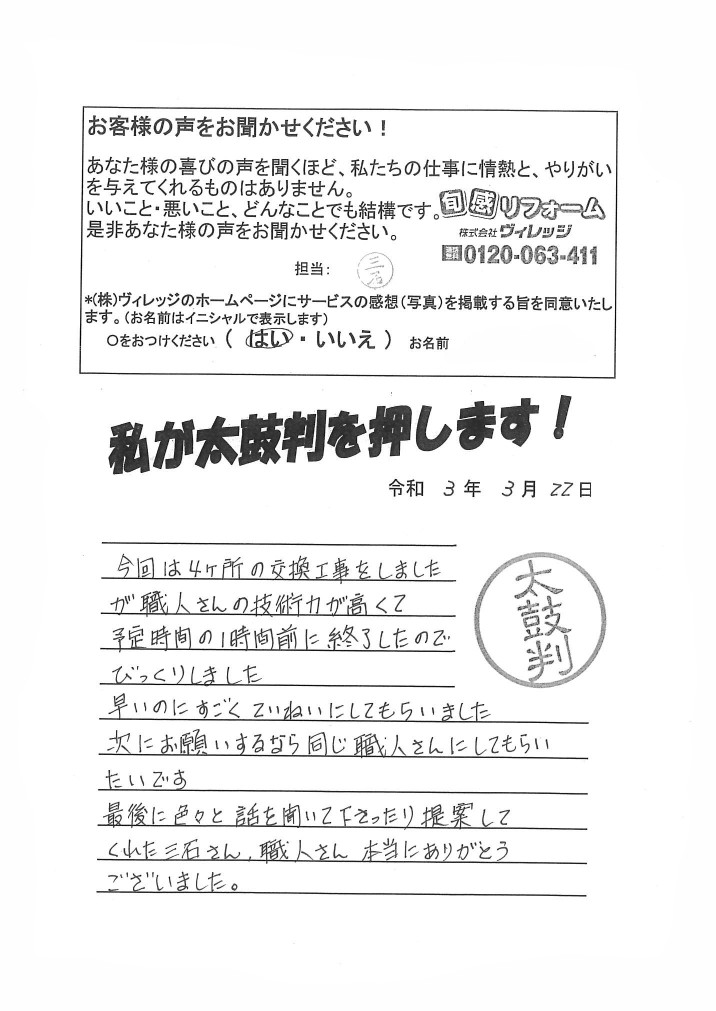 お客様の声をお聞かせください！
あなた様の喜びの声を聞くほど、私たちの仕事に情熱と、やりがい
を与えてくれるものはありません。
いいこと・悪いこと、どんなことでも結構です。
是非あなた様の声をお聞かせください。
旬感リフォーム
株式会社 ヴィレッジ
0120-063-411
担当： 三石
*(株)ヴィレッジのホームページにサービスの感想（写真）を掲載する旨を同意いたし
ます。（お名前はイニシャルで表示します）
〇をおつけください（ はい ・ いいえ ） お名前
私が太鼓判を押します！
令和 3 年 3 月 22 日
今回は4ヶ所の交換工事をしました
が職人さんの技術力が高くて
予定時間の1時間前に終了したので
びっくりしました
早いのにすごくていねいにしてもらいました
次にお願いするなら同じ職人さんにしてもらい
たいです
最後に色々と話を聞いて下さったり提案して
くれた三石さん、職人さん 本当にありがとう
ございました。
太鼓判